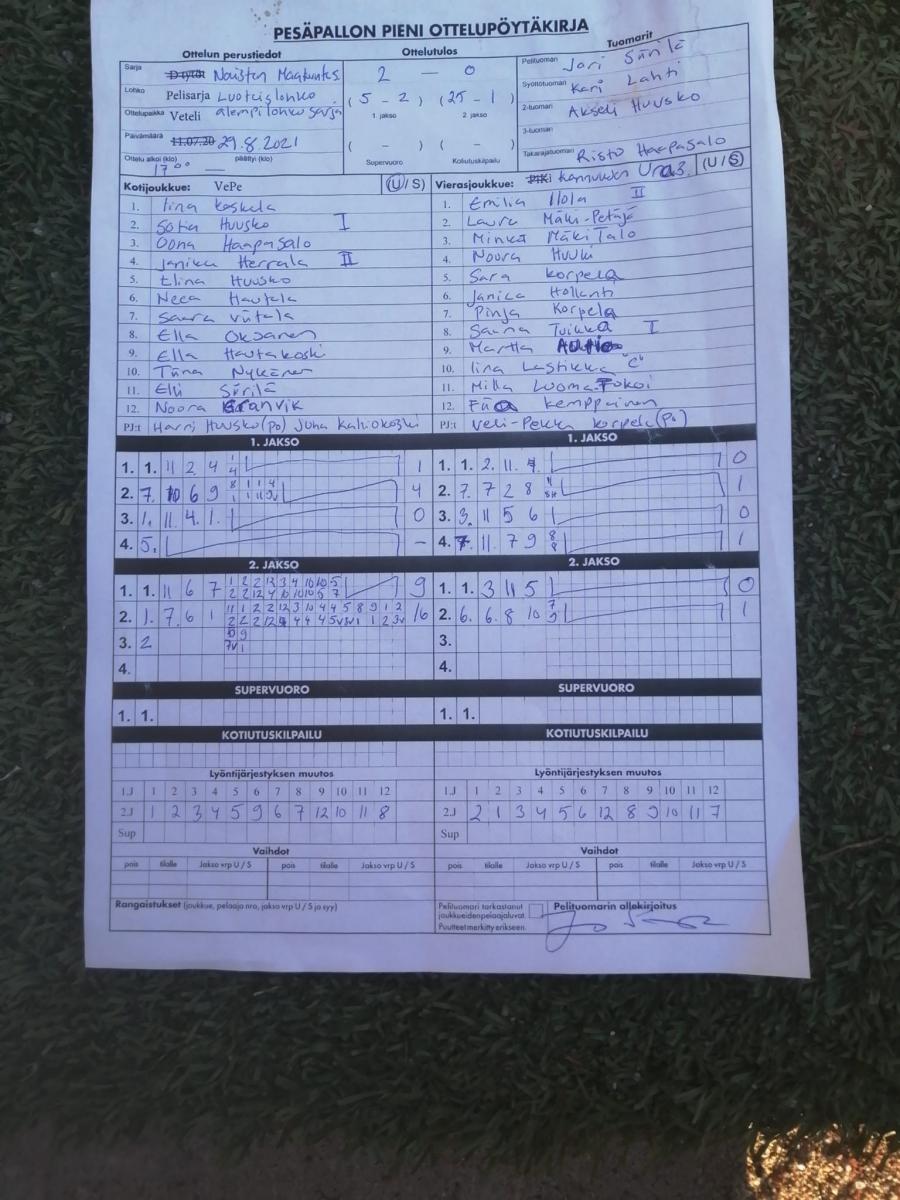 PESÄPALLON PIENI OTTELUPÖYTÄKIRJA
Ottelun perustiedot Ottelutulos Tuomarit
Sarja D-tytöt Naisten Maakunta
Lohko Pelisarja Luoteislohko
Ottelupaikka Veteli alempi lohko sarja
Päivämäärä 11.07.20 29.8.2021
Ottelu alkoi (klo) päättyi (klo)
17 00 —
2 — 0
( 5 - 2 ) ( 25 - 1 )
1. jakso 2. jakso
( - ) ( - )
Supervuoro Kotiutuskilpailu
Pelituomari Jari Siirilä
Syöttötuomari Kari Lahti
2-tuomari Akseli Huusko
3-tuomari
Takarajatuomari Risto Haapasalo
Kotijoukkue: VePe (U/S)
1. Iina Koskela
2. Sofia Huusko I
3. Oona Haapasalo
4. Janika Herrala II
5. Elina Huusko
6. Neea Hautala
7. Saara Viitala
8. Ella Oksanen
9. Ella Hautakoski
10. Tiina Nykänen
11. Elli Siirilä
12. Noora Granvik
PJ:t Harri Huusko (PO) Juha Kaliokoski
Vierasjoukkue: Kannuksen Ura 3. (U/S)
1. Emilia Ilola II
2. Laura Mäki-Petäjä
3. Minka Mäkitalo
4. Noora Huuki
5. Sara Korpela
6. Janica Hollanti
7. Pinja Korpela
8. Sanna Tuikka I
9. Martta
10. Iina Lastikka "C"
11. Milla Luoma
12. Kemppainen
PJ:t Veli-Pekka Korpela (PO)
1. JAKSO 1. JAKSO
1. 1. 11 2 4 1
2. 7. 10 6 9 4
3. 1. 11. 4. 1. 0
4. 5. –
1. 1. 2. 11. 0
2. 7. 7 2 8 1
3. 3. 11 5 6 0
4. 7. 11. 7 9 8 8 1
2. JAKSO 2. JAKSO
1. 1. 11 6 7 9
2. 1. 7. 6 1 16
3. 2
4.
1. 1. 3 11 5 0
2. 6. 6. 8 10 7 9 1
3.
4.
SUPERVUORO SUPERVUORO
1. 1. 1. 1.
KOTIUTUSKILPAILU KOTIUTUSKILPAILU
Lyöntijärjestyksen muutos Lyöntijärjestyksen muutos
1.J 1 2 3 4 5 6 7 8 9 10 11 12
2.J 1 2 3 4 5 9 6 7 12 10 11 8
Sup
1.J 1 2 3 4 5 6 7 8 9 10 11 12
2.J 2 1 3 4 5 6 12 8 9 10 11 7
Sup
Vaihdot Vaihdot
pois tilalle Jakso vrp U / S pois tilalle Jakso vrp U / S
pois tilalle Jakso vrp U / S pois tilalle Jakso vrp U / S
Rangaistukset (joukkue, pelaaja nro, jakso vrp U / S ja syy)
Pelituomari tarkastanut
joukkueiden pelaajaluvat
Puutteet merkitty erikseen.
Pelituomarin allekirjoitus